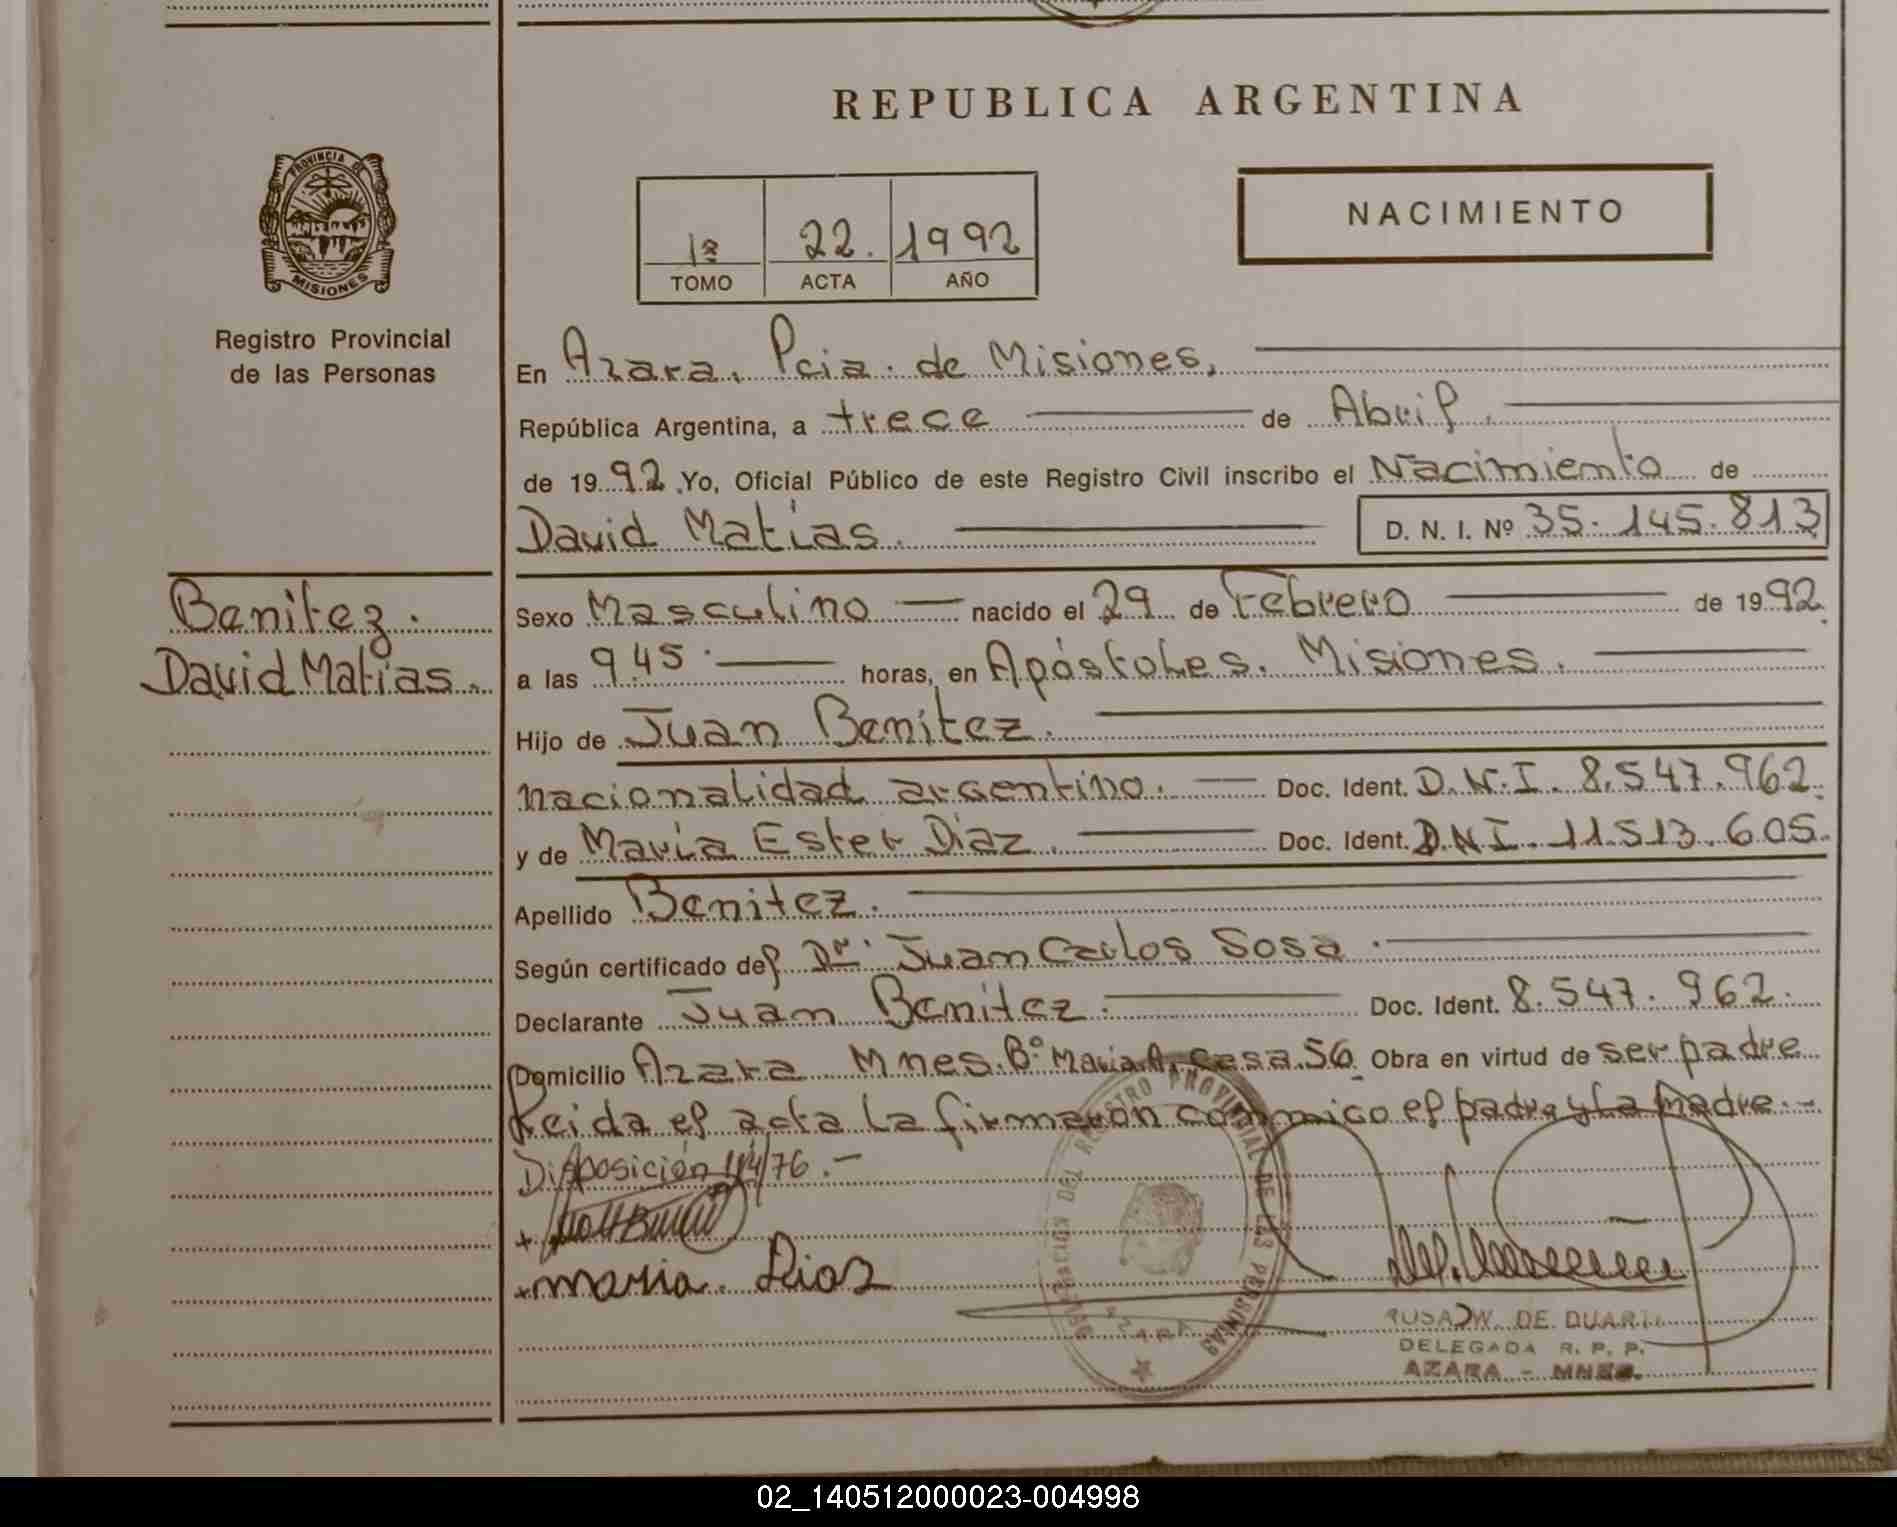 REPUBLICA ARGENTINA
PROVINCIA DE
MISIONES
Registro Provincial
de las Personas
1º 22. 1992
TOMO ACTA AÑO
NACIMIENTO
En Azara, Pcia. de Misiones,
República Argentina, a trece de Abril.
de 1992. Yo, Oficial Público de este Registro Civil inscribo el Nacimiento de
David Matías. D. N. I. Nº 35.145.813
Benitez.
David Matías.
Sexo Masculino nacido el 29 de Febrero de 1992.
a las 9.45. horas, en Apóstoles. Misiones.
Hijo de Juan Benítez.
nacionalidad argentino. Doc. Ident. D.N.I. 8.547.962.
y de María Ester Díaz. Doc. Ident. D.N.I. 11.513.605.
Apellido Benitez.
Según certificado del Dr. Juan Carlos Sosa.
Declarante Juan Benítez. Doc. Ident. 8.547.962.
Domicilio Azara Mnes. Bº María A. Casa 56 Obra en virtud de ser padre
leida el acta la firmaron conmigo el padre y la madre.-
Disposición 114/76.-
+
+ maria. Dias
REGISTRO PROVINCIAL DE LAS PERSONAS
AZARA
ROSA W. DE DUARTE
DELEGADA R. P. P.
AZARA - MNES.
02_140512000023-004998